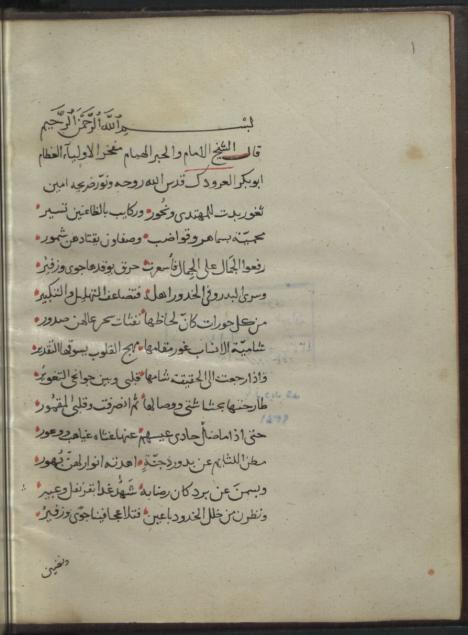 ١
بسم الله الرحمن الرحيم
قال الشيخ الامام والحبر الهمام مفخر الاولياء العظام
ابو بكر العرودك قدس الله روحه ونور ضريحه امين
ثغور بدت للمهتدي ونحور وركايب بالظاعنين تسير
محميّة بسماهر وقواضب وصفاون بقتادهن شمور
رفعوا الجمال على الجمال فأسعرت حرق يوقدها جوى وزفير
وسرى البدر وفي الخدور اهلة فتضاعف التهليل والتكبير
من كل حورات كأن لحاظها نفثات سحر عالهن صدور
شاميّة الانساب غور مقامها مهج القلوب يسوقها التقدير
واذا رجعت الى الحقيقة شامها قلبي وبين جوانحي التغوير
طارحتها بحشاشتي ووصالها ثم انصرفت وقلبي المقهور
حتى اذا ما ضل حادي عيسهم عنها غثاه غياهب ووعور
مطن اللثايم عن بدور دجنة اهدته انوار لهن بهور
وبسمن عن برد كان رضابه شهد غدا بقرنفل وعبير
ونظرن من خلل الخدود باعين فتلاعجا فينا جوى وزفير